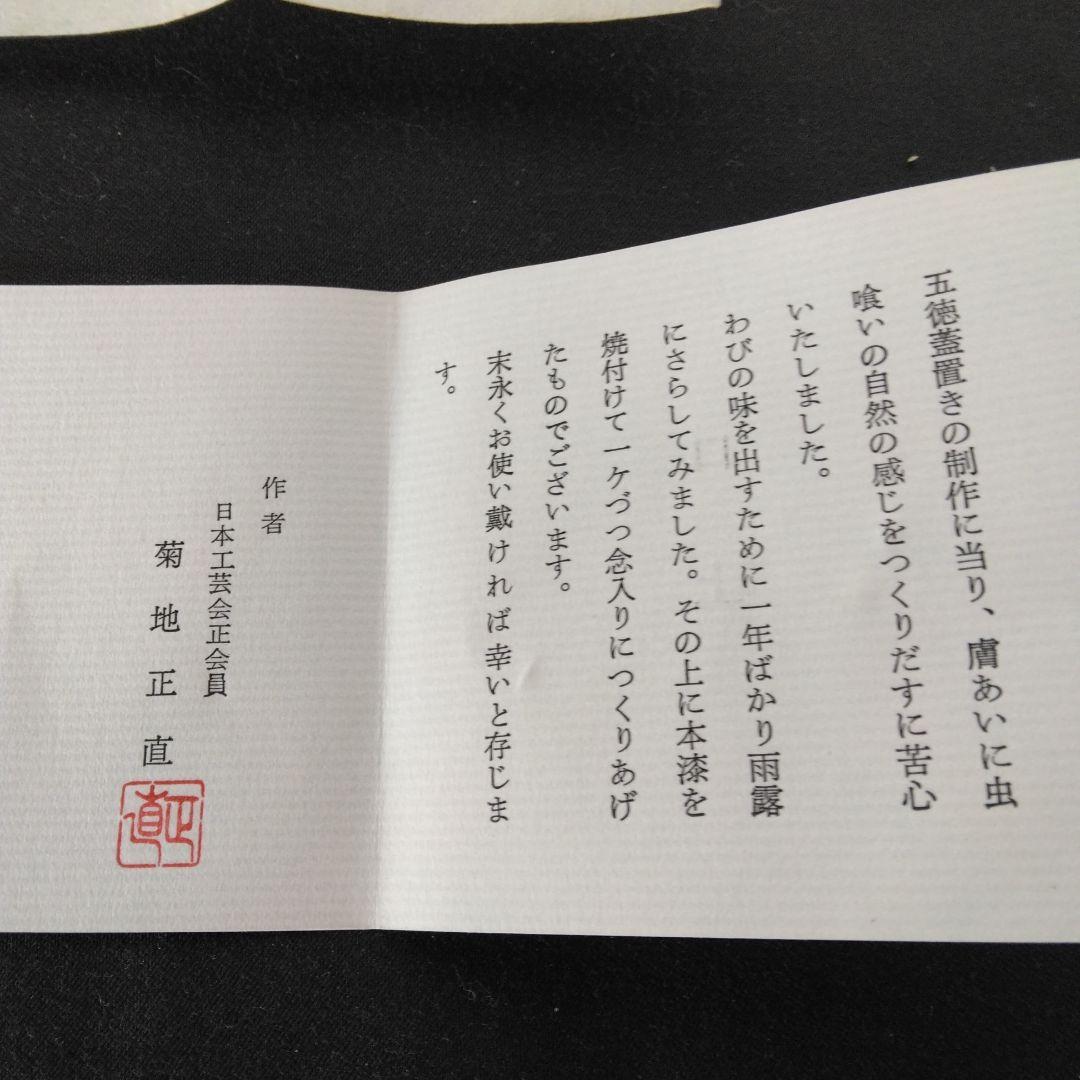 五徳蓋置きの制作に当り、膚あいに虫
喰いの自然の感じをつくりだすに苦心
いたしました。
わびの味を出すために一年ばかり雨露
にさらしてみました。その上に本漆を
焼付けて一ケづつ念入りにつくりあげ
たものでございます。
末永くお使い戴ければ幸いと存じま
す。
作者
日本工芸会正会員
菊地正直
正直